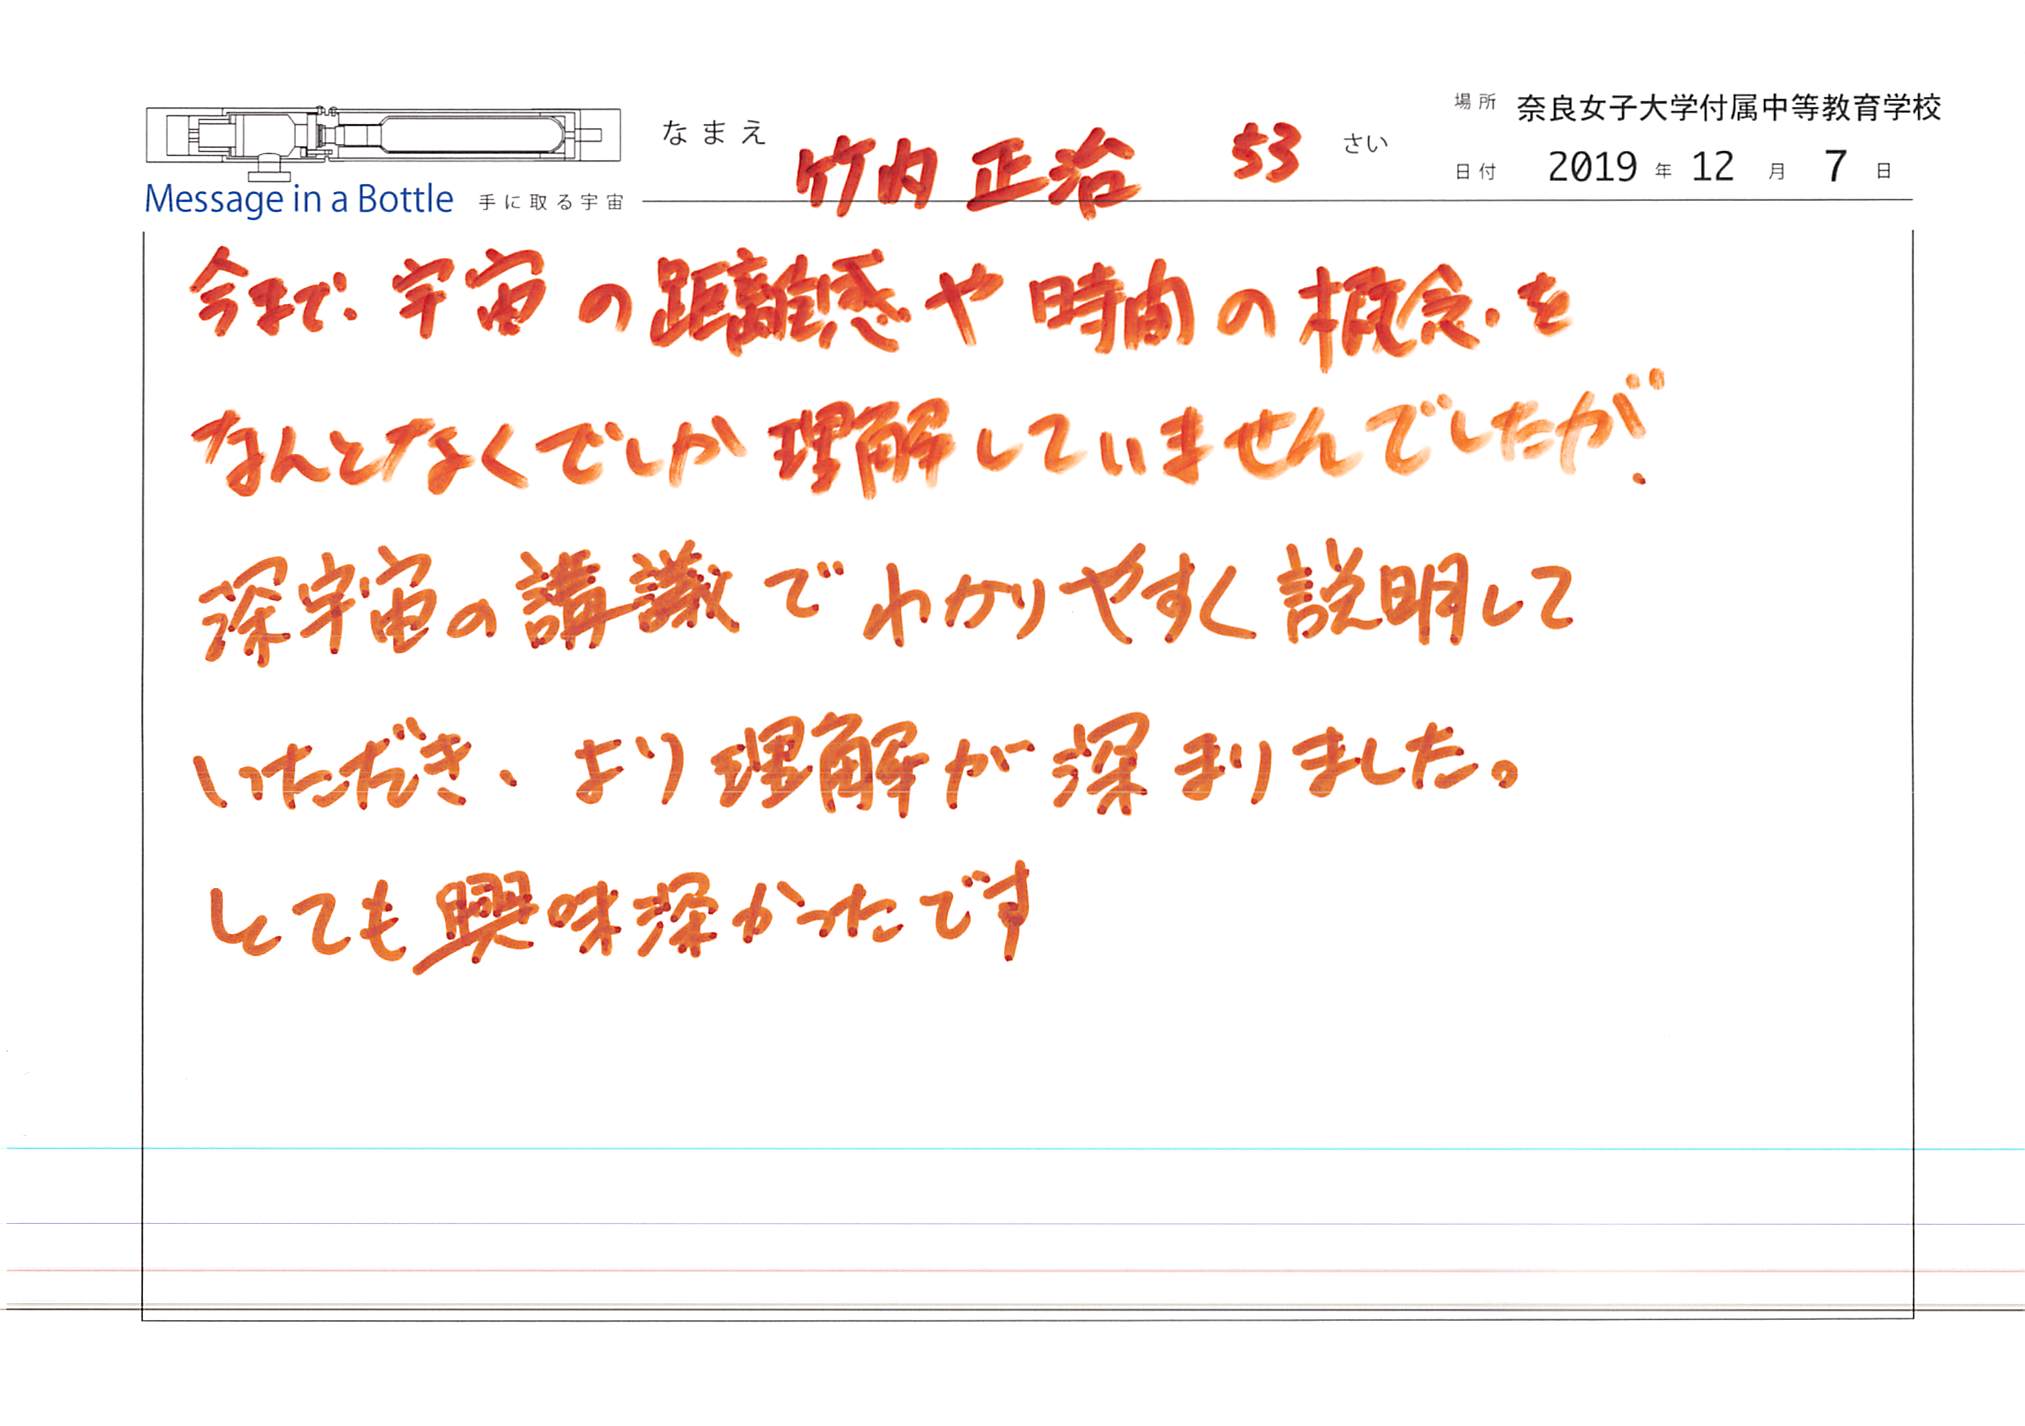 場所 奈良女子大学付属中等教育学校
なまえ 竹内 正治 53 さい
日付 2019 年 12 月 7 日
Message in a Bottle 手に取る宇宙
今まで、宇宙の距離感や時間の概念を
なんとなくでしか理解していませんでしたが、
深宇宙の講議でわかりやすく説明して
いただき、より理解が深まりました。
とても興味深かったです